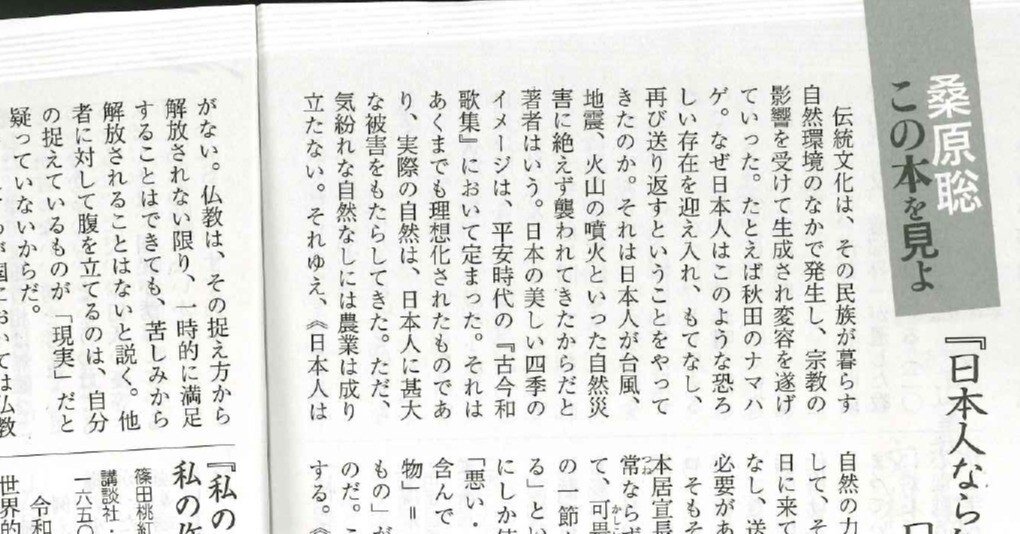 桑原聡
この本を見よ
『日本人なら
伝統文化は、その民族が暮らす
自然環境のなかで発生し、宗教の
影響を受けて生成され変容を遂げ
ていった。たとえば秋田のナマハ
ゲ。なぜ日本人はこのような恐ろ
しい存在を迎え入れ、もてなし、
再び送り返すということをやって
きたのか。それは日本人が台風、
地震、火山の噴火といった自然災
害に絶えず襲われてきたからだと
著者はいう。日本の美しい四季の
イメージは、平安時代の『古今和
歌集』において定まった。それは
あくまでも理想化されたものであ
り、実際の自然は、日本人に甚大
な被害をもたらしてきた。ただ、
気紛れな自然なしには農業は成り
立たない。それゆえ、《日本人は
自然の力
して、そ
日に来て
なし、送
必要があ
そもそ
本居宣長
常ならず
て、可畏
の一節
る」とい
にしか使
「悪い・
含んで
物」＝
もの」が
のだ。こ
する。《
がない。仏教は、その捉え方から
解放されない限り、一時的に満足
することはできても、苦しみから
解放されることはないと説く。他
者に対して腹を立てるのは、自分
の捉えているものが「現実」だと
疑っていないからだ。
国においては仏教
『私の
私の
篠田桃紅
講談社・
一六五〇
令和
世界的